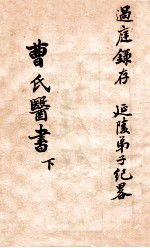 過庭錄存　延陵弟子紀畧
曹氏醫書 下